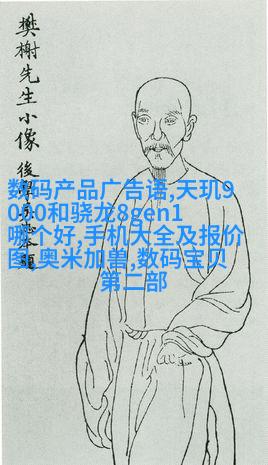 樊榭先生小像
後學
数码产品广告语,天玑9
000和骁龙8gen1
哪个好,手机大全及报价
图,奥米加兽,数码宝贝
第二部